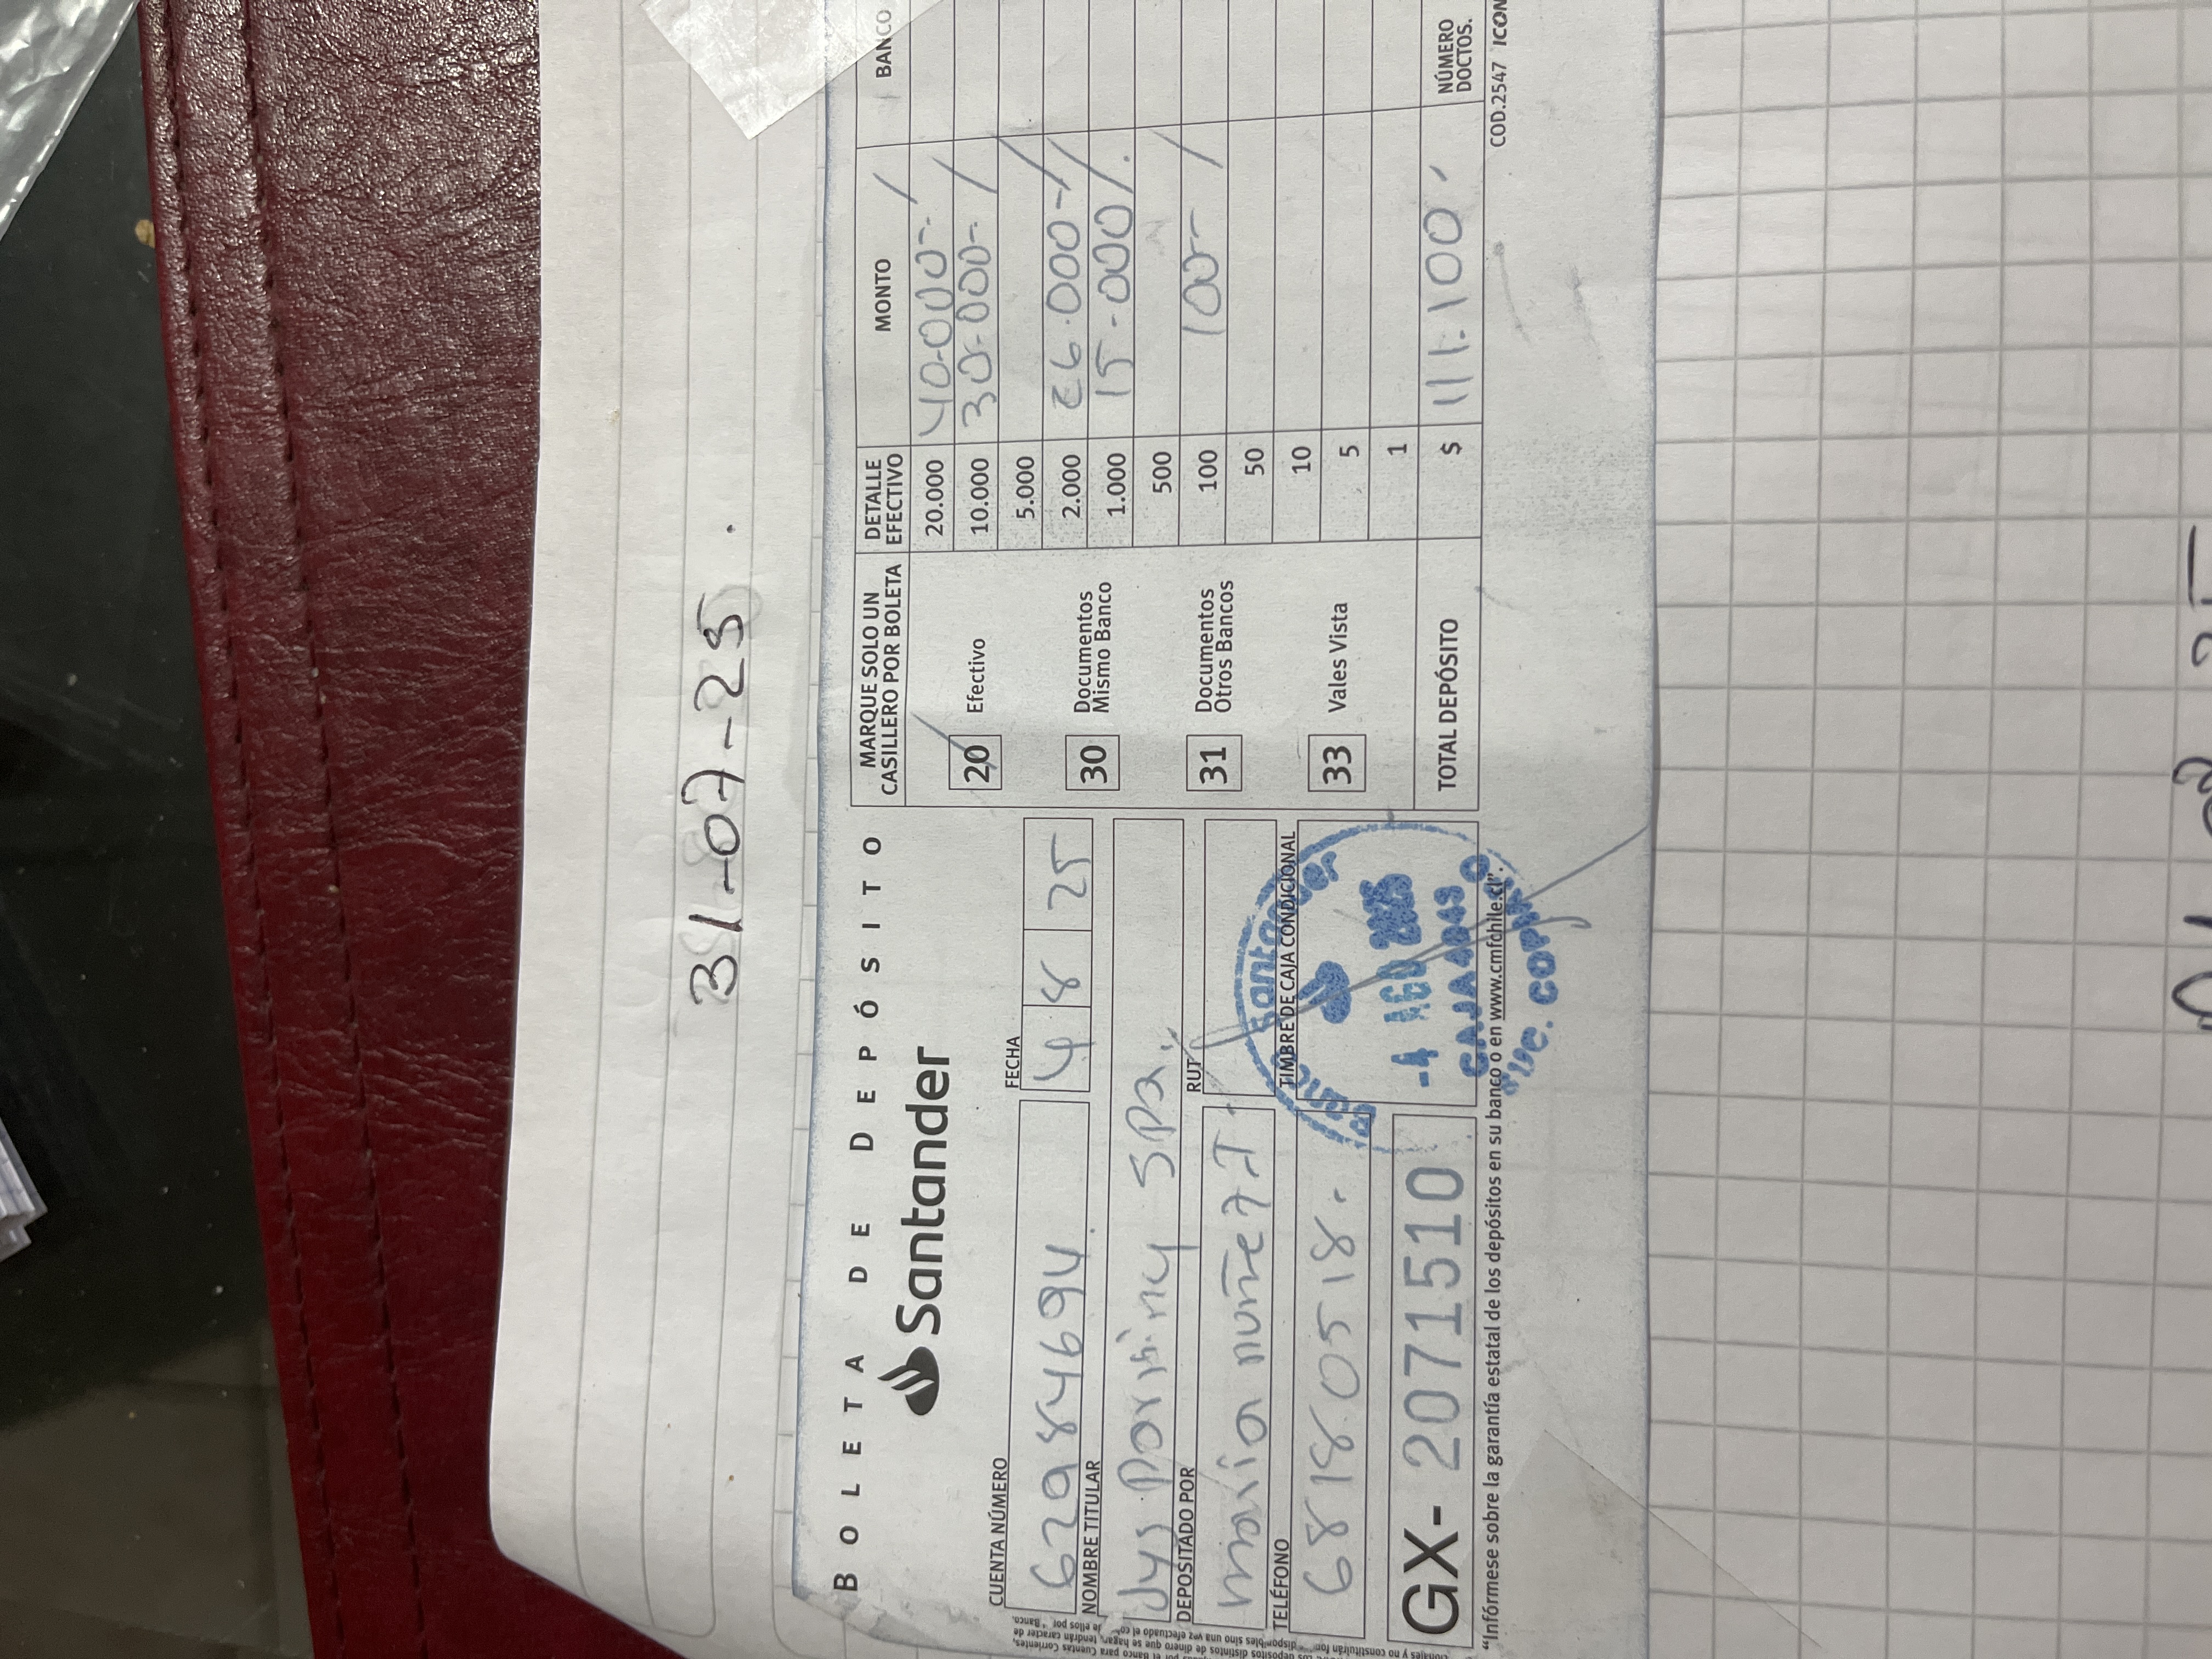 31-07-25.
BOLETA DE DEPÓSITO
Santander
FECHA
4 8 25
CUENTA NÚMERO
62984694.
NOMBRE TITULAR
SPA.
DEPOSITADO POR
maria nuñez.T.
RUT
TELÉFONO
68180518.
TIMBRE DE CAJA CONDICIONAL
Santander
-4 AGO 2025
GX- 2071510
"Infórmese sobre la garantía estatal de los depósitos en su banco o en www.cmfchile.cl".
MARQUE SOLO UN CASILLERO POR BOLETA
20 Efectivo
30 Documentos Mismo Banco
31 Documentos Otros Bancos
33 Vales Vista
DETALLE EFECTIVO MONTO BANCO
20.000 40.000-
10.000 30.000-
5.000
2.000 26.000-
1.000 15.000
500
100 100-
50
10
5
1
TOTAL DEPÓSITO $ 111.100 NÚMERO DOCTOS.
COD.2547 ICON